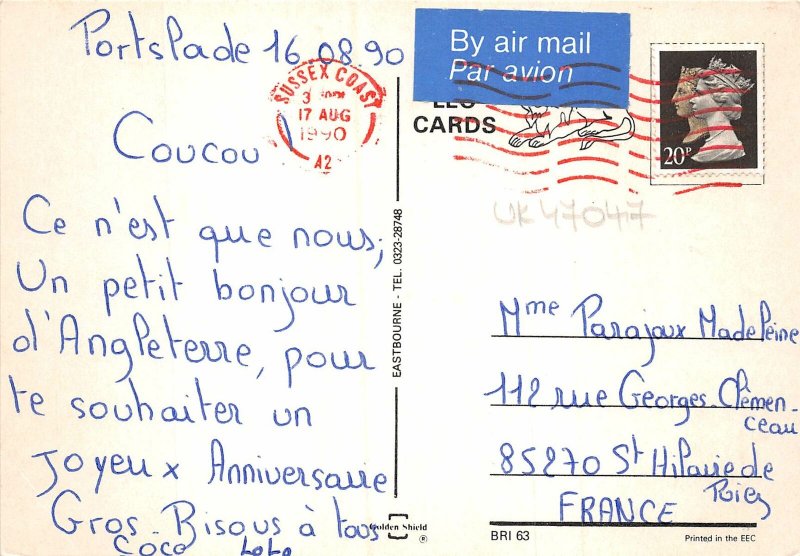 Portslade 16.08.90
Coucou !
Ce n'est que nous,
Un petit bonjour
d'Angleterre, pour
te souhaiter un
Joyeux Anniversaire
Gros Bisous à tous
Coco Lolo
SUSSEX COAST
17 AUG
1990
A2
By air mail
Par avion
CARDS
20P
UK47047
EASTBOURNE - TEL. 0323-28748
Mme Parajaux Madeleine
112 rue Georges Clémen-
ceau
85270 St Hilaire de
Riez
FRANCE
Golden Shield
®
BRI 63
Printed in the EEC